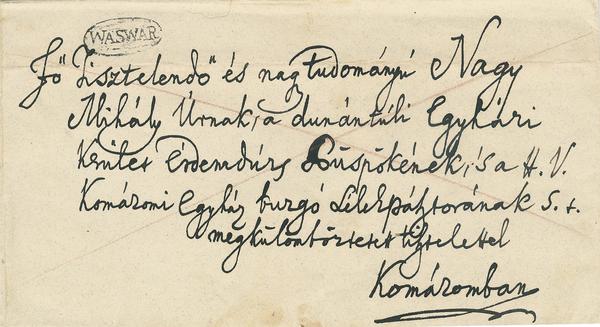 WASWAR
Fő Tisztelendő és nagytudományú Nagy
Mihály Úrnak, a dunántúli Egyházi
Kerület Érdemdús Püspökének, 's a H. V.
Komáromi Egyház buzgó Lelkipásztorának s. t.
megkülömböztetett tisztelettel
Komáromban